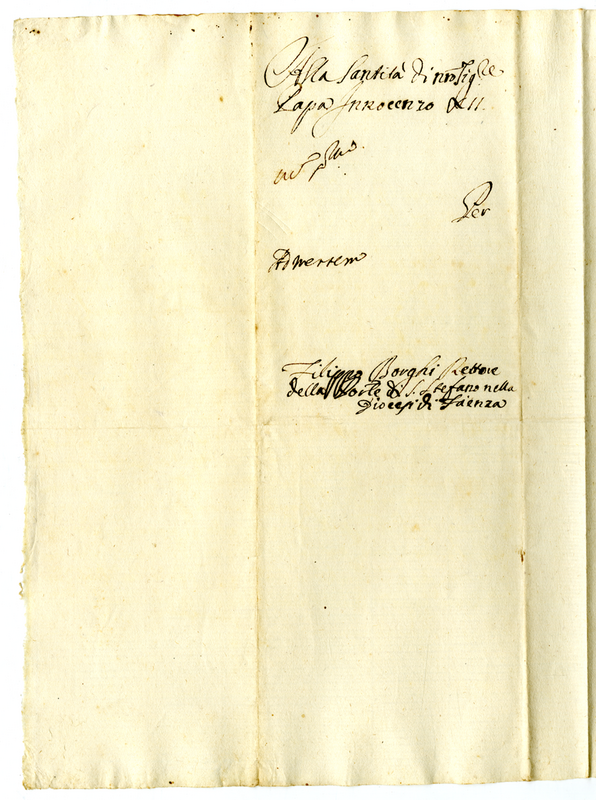 Alla Santità di nro Sigre
Papa Innocenzo XII
Per
Ad mentem
Filippo Borghi Rettore
della Corte di S. Stefano nella
Diocesi di Faenza